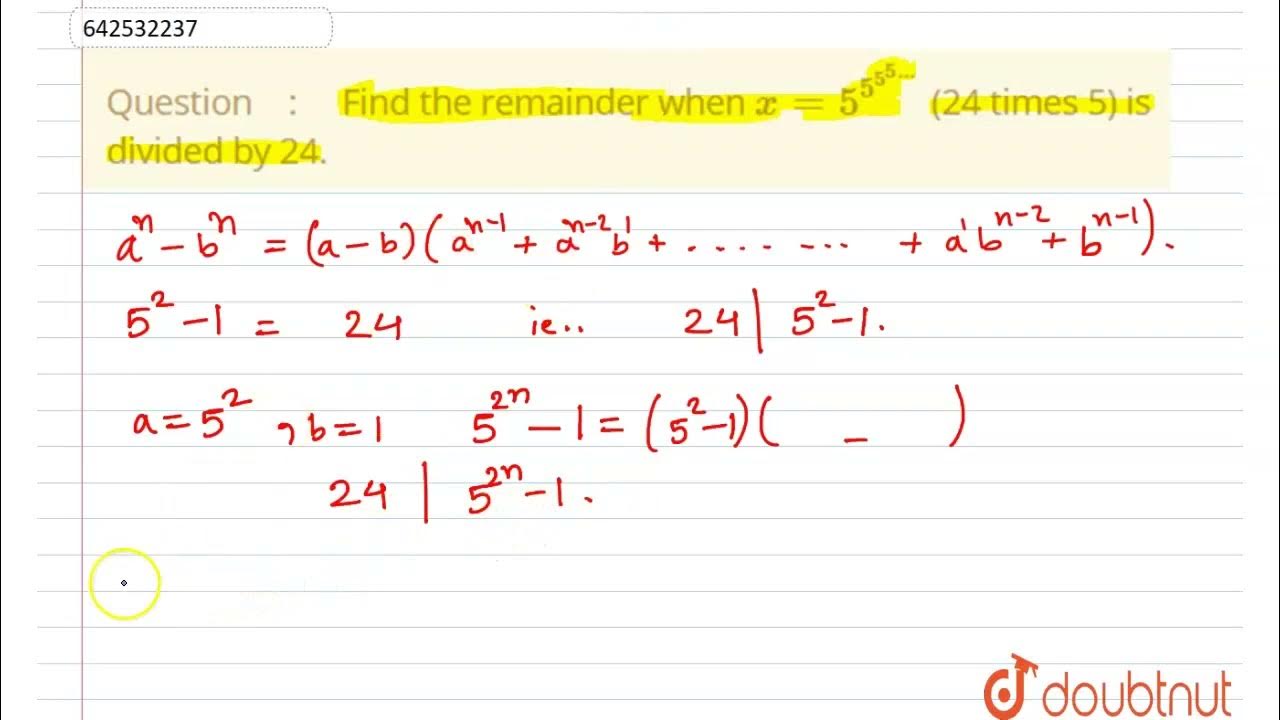 642532237
Question : Find the remainder when $x = 5^{5^{5^{5^{\cdots}}}}$ (24 times 5) is
divided by 24.
$a^n - b^n = (a-b)(a^{n-1} + a^{n-2}b^1 + \ldots\ldots \ldots + a^1b^{n-2} + b^{n-1}).$
$5^2 - 1 = 24$ ie.. $24 | 5^2 - 1.$
$a = 5^2, b = 1$ $5^{2n} - 1 = (5^2 - 1)( \quad - \quad )$
$24 | 5^{2n} - 1.$
doubtnut